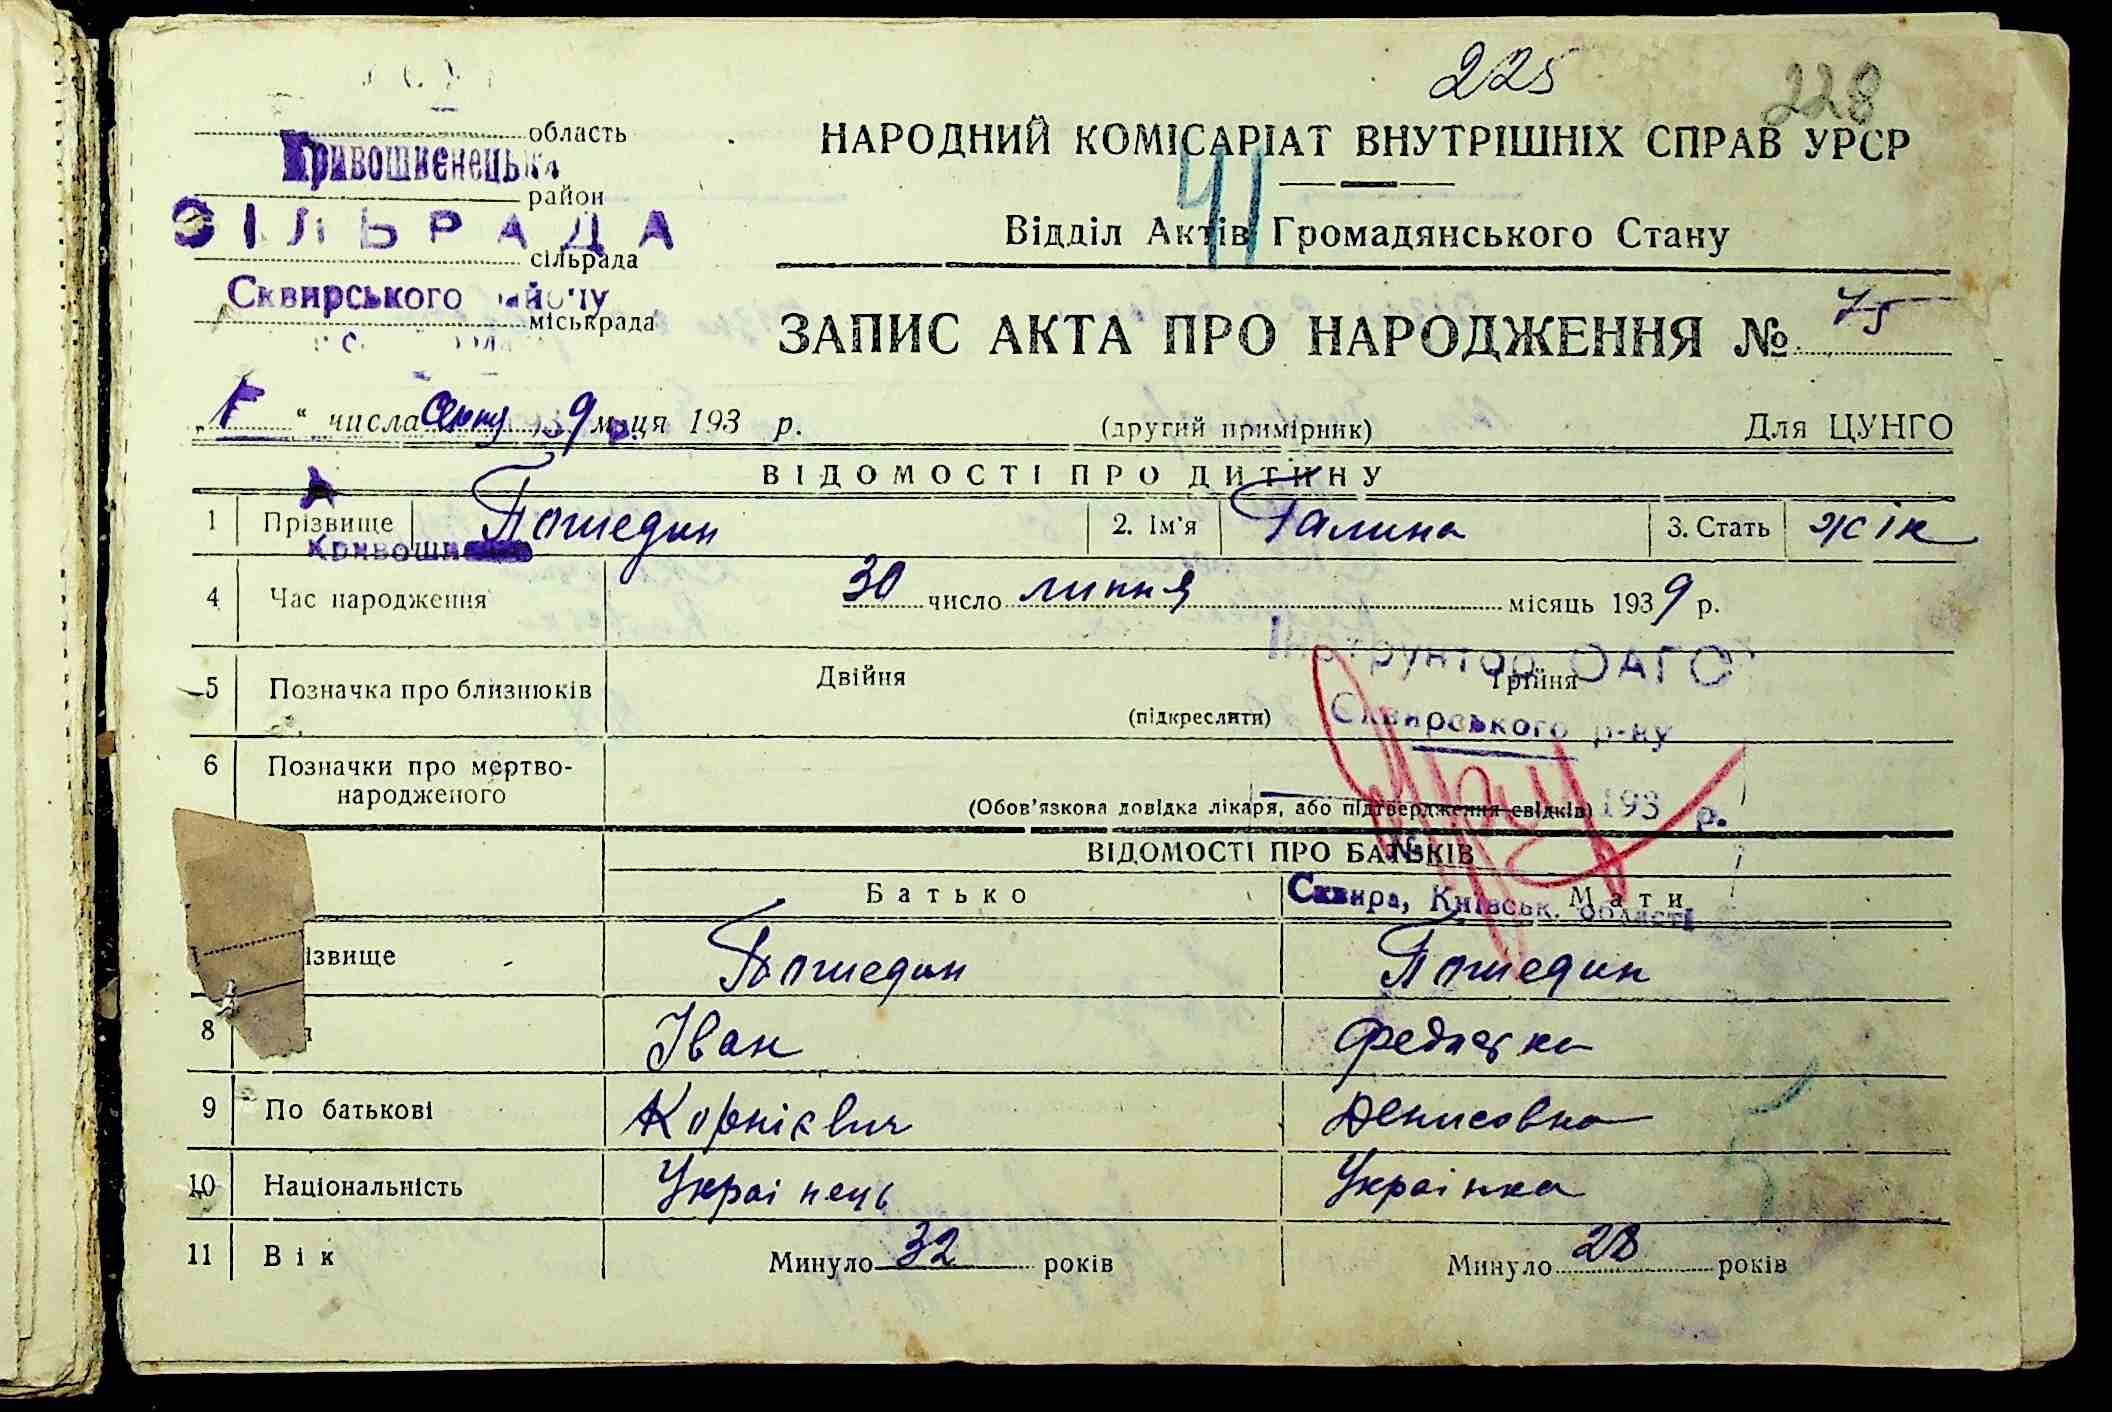 225
228
область
НАРОДНИЙ КОМІСАРІАТ ВНУТРІШНІХ СПРАВ УРСР
Кривошиєнецька
район
41
СІЛЬРАДА
Відділ Актів Громадянського Стану
сільрада
Сквирського району
міськрада
ЗАПИС АКТА ПРО НАРОДЖЕННЯ № 75
„1“ числа серпня 9 м-ця 193 р.
(другий примірник)
Для ЦУНГО
ВІДОМОСТІ ПРО ДИТИНУ
1 Прізвище Пошедин 2. Ім'я Галина 3. Стать жін
Кривоши
4 Час народження 30 число липня місяць 1939 р.
Інструктор ОАГС
5 Позначка про близнюків Двійня Трійня
(підкреслити)
Сквирського р-ну
6 Позначки про мертвонародженого
(Обов'язкова довідка лікаря, або підтвердження свідків)
193 р.
№
ВІДОМОСТІ ПРО БАТЬКІВ
Батько Мати
Сквира, Київськ. області
ізвище Пошедин Пошедин
8 Іван
9 По батькові Денисовна
10 Національність Украінець Украінка
11 Вік Минуло 32 років Минуло 28 років